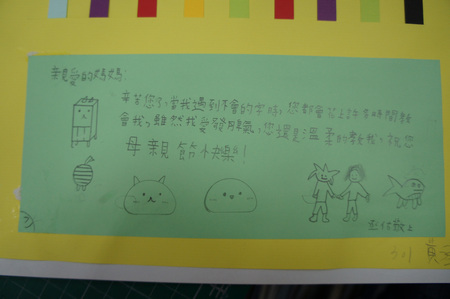 親愛的媽媽:
辛苦您了,當我遇到不會的字時,您都會花上許多時間教
會我,雖然我愛發脾氣,您還是溫柔的教我,祝您
母親節快樂!
敬上